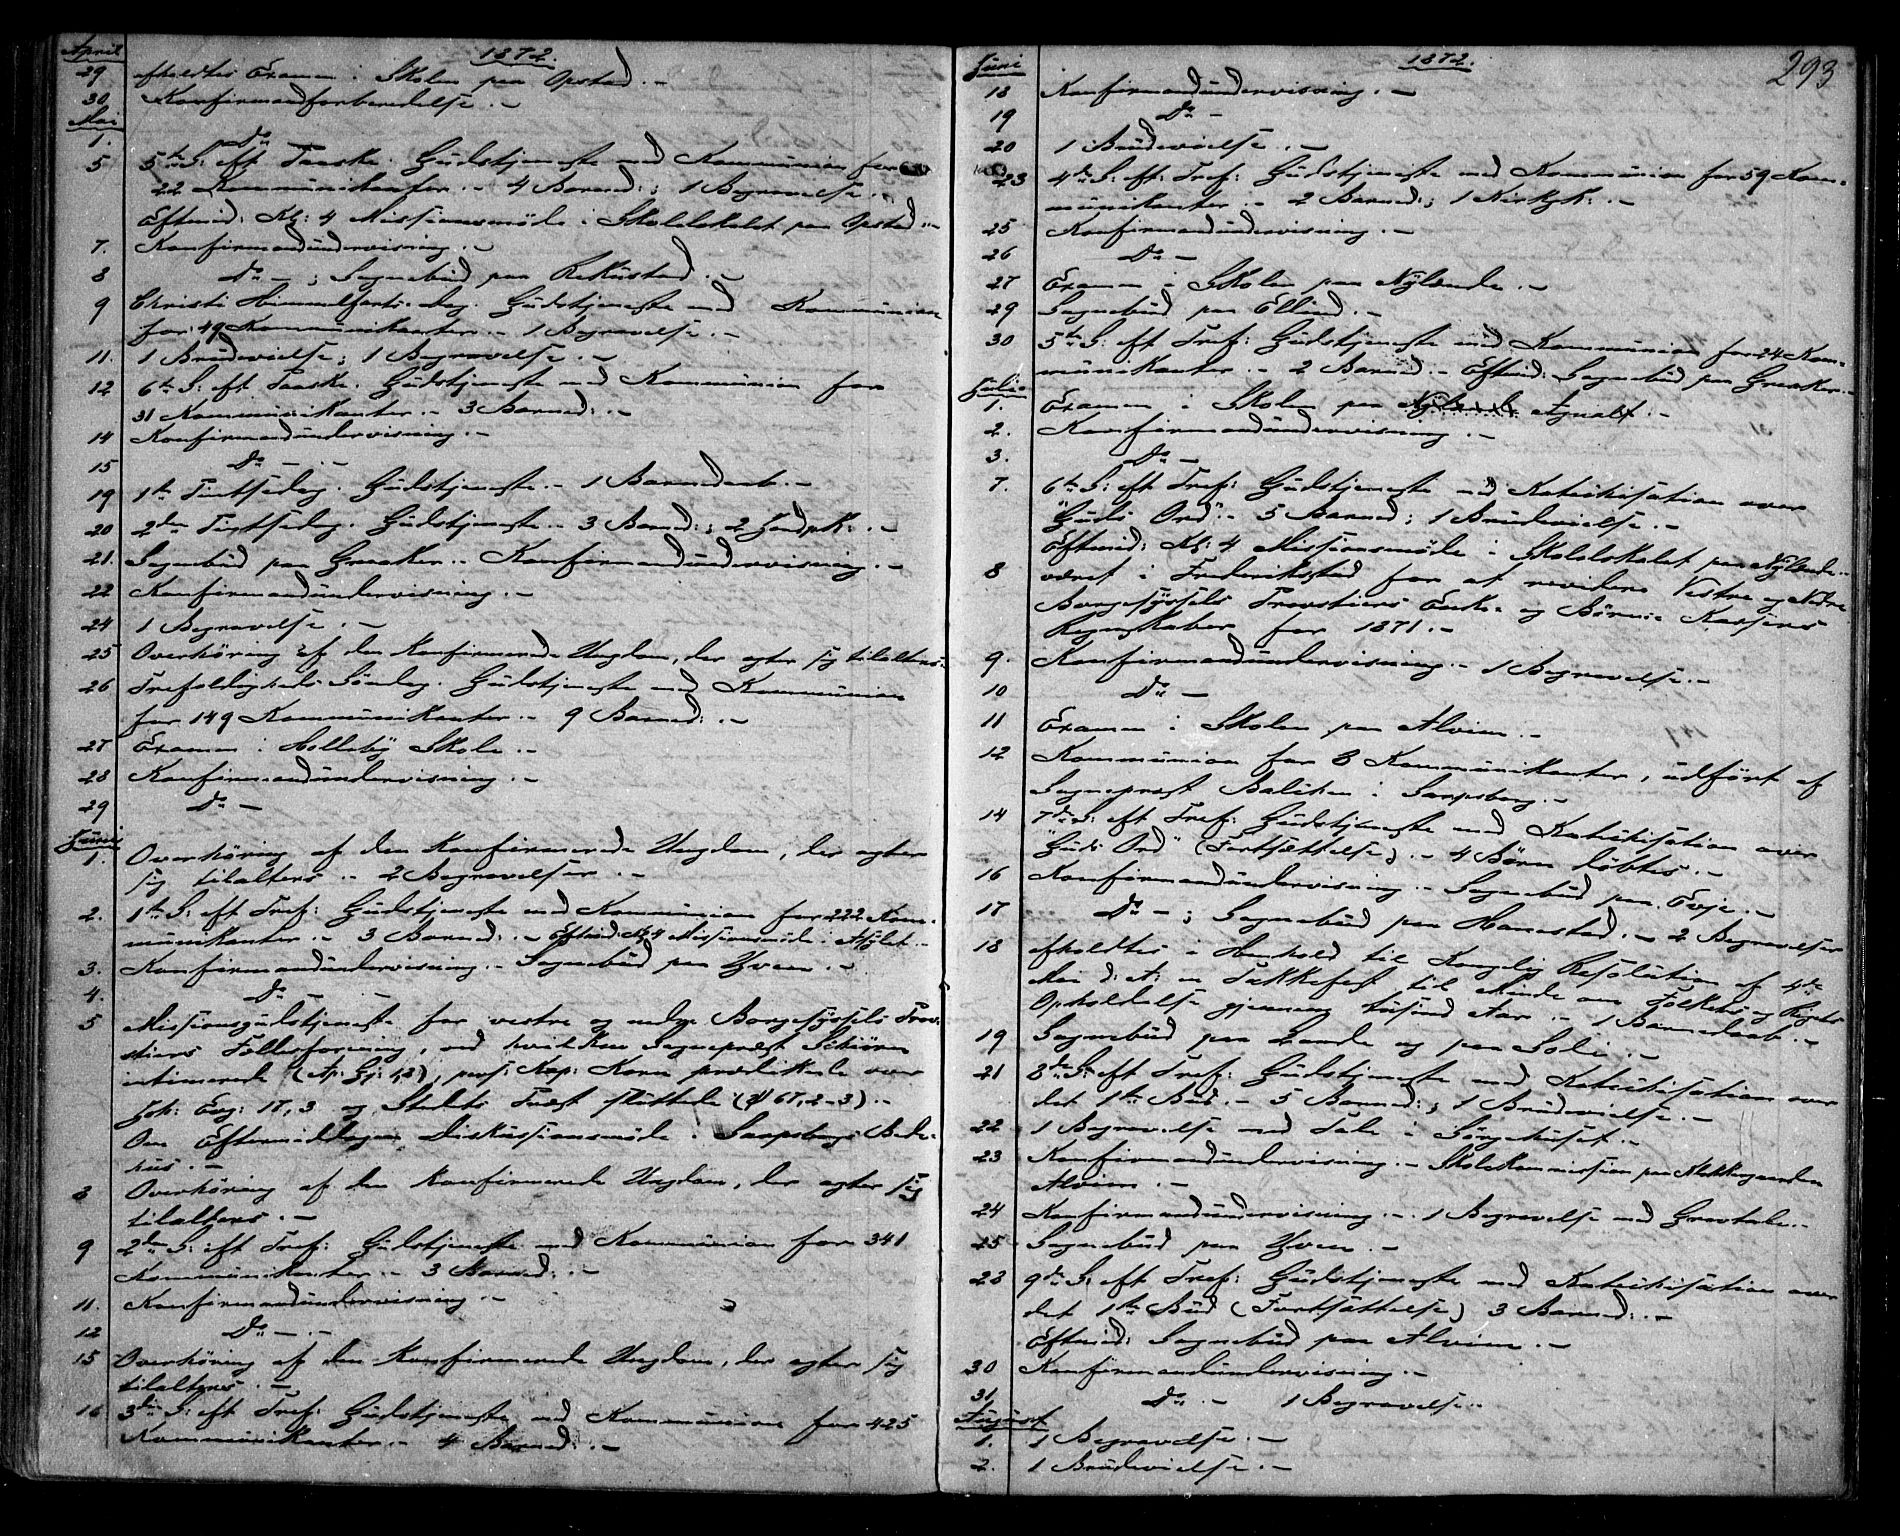 April 1872.
29 afholdtes Examen i Skolen paa Opstad.-
30 Konfirmandforberedelse.-
Mai
1. Do
5 5te S: eft Paaske. Gudstjeneste med Kommunion for
22 Kommunikanter.- 4 Barned:; 1 Begravelse.-
Eftmid: Kl: 4 Missionsmøde i Skolelokalet paa Opstad.-
7. Konfirmandundervisning.-
8 Do - ; Sognebud paa Rekustad.-
9 Christi Himmelfarts-dag. Gudstjeneste med Kommunion
for 49 Kommunikanter.- 1 Begravelse.-
11. 1 Brudevielse; 1 Begravelse.-
12 6te S: eft Paaske. Gudstjeneste med Kommunion for
31 Kommunikanter.- 3 Barned:.-
14 Konfirmandundervisning.-
15 Do - . -
19 1te Pintsedag. Gudstjeneste.- 1 Barnedaab.-
20 2den Pintsedag. Gudstjeneste.- 3 Barned:; 2
21. Sognebud paa Greaker.- Konfirmandundervisning.-
22 Konfirmandundervisning.-
24 1 Begravelse.-
25 Overhøring af den konfirmerede Ungdom, der agter sig tilalters.
26 Trefoldigheds-Søndag. Gudstjeneste med Kommunion
for 149 Kommunikanter.- 9 Barned:.-
27 Examen i Holleby Skole.-
28 Konfirmandundervisning.-
29 Do -
Juni
1. Overhøring af den konfirmerede Ungdom, der agter
sig tilalters.- 2 Begravelser.-
2. 1te S: eft Tref: Gudstjeneste med Kommunion for 222 Kom-
munikanter.- 3 Barned:.- Eftmid: Kl: 4 Missionsmøde i Asylet.-
3. Konfirmandundervisning.- Sognebud paa Hven.-
4. Do
5 Missionsgudstjeneste for vestre og nedre Borgesyssels Prov-
stiers Fællesforening, ved hvilken Sognepræst Schiørn
intimerede (Ap: Gj: 1,2), pers: Kap: Korn prædikede over
Joh: Evg: 17,3 og Stedets Præst sluttede (ψ 67, 2-3).-
Om Eftermiddagen Diskussionsmøde i Sarpsborgs Bede-
hus.-
8 Overhøring af den konfirmerede Ungdom, der agter sig
tilalters.-
9 2den S: eft Tref: Gudstjeneste med Kommunion for 341
Kommunikanter.- 3 Barned:.-
11. Konfirmandundervisning.-
12 Do - . -
15 Overhøring af den konfirmerede Ungdom, der agter sig
tilalters.-
16 3die S: eft Tref: Gudstjeneste med Kommunion for 425
Kommunikanter.- 4 Barned:.-
Juni 1872. 293
18 Konfirmandundervisning.-
19 Do -
20 1 Brudevielse.-
23 4de S: eft: Tref: Gudstjeneste med Kommunion for 59 Kom-
munikanter.- 2 Barned:; 1 Kirkgk:.-
25 Konfirmandundervisning.-
26 Do -
27 Examen i Skolen paa Nylænde.-
29 Sognebud paa Ellind.-
30 5te S: eft Tref: Gudstjeneste med Kommunion for 24 Kom-
munikanter.- 2 Barned.- Eftmid: Sognebud paa Greaker.-
Juli
1. Examen i Skolen paa Agnalt.-
2. Konfirmandundervisning.-
3. Do -
7. 6te S: eft Tref: Gudstjeneste med Katekisation over
"Guds Ord".- 5 Barned; 1 Brudevielse.-
Eftmid: Kl: 4 Missionsmøde i Skolelokalet paa Nylænde.-
8 været i Frederikstad for at revidere Vestre og Nedre
Borgesyssels Provstiers Enke- og Børne-Kassers
Regnskaber for 1871.-
9. Konfirmandundervisning.- 1 Begravelse.-
10 Do -
11 Examen i Skolen paa Alvim.-
12 Kommunion for 8 Kommunikanter, udført af
Sognepræst Balchen i Sarpsborg.-
14 7de S: eft Tref: Gudstjeneste med Katekisation over
"Guds Ord" (Fortsættelse).- 4 Børn døbtes.-
16 Konfirmandundervisning.- Sognebud paa Evje.-
17 Do - ; Sognebud paa Hannestad.- 2 Begravelser
18 afholdtes i Henhold til Kongelig Resolution af 4de
Mai d: A: en Takkefest til Minde om Folkets og Rigets
Opholdelse gjennem tusend Aar.- 1 Barnedaab.-
19 Sognebud paa Lande og paa Soli.-
21 8de S: eft Tref: Gudstjeneste med Katekisation over
det 1te Bud.- 5 Barned:; 1 Brudevielse.-
22 1 Begravelse med Tale i Sørgehuset.-
23 Konfirmandundervisning.- Skolekommission paa Klokkergaarden
Alvim.-
24 Konfirmandundervisning.- 1 Begravelse med Gravtale.-
25 Sognebud paa Hven.-
28 9de S: eft Tref: Gudstjeneste med Katekisation over
det 1te Bud (Fortsættelse) 3 Barned:.-
Eftmid: Sognebud paa Alvim.-
30 Konfirmandundervisning.-
31 Do .- 1 Begravelse.-
August
1. 1 Begravelse.-
2. 1 Brudevielse.-